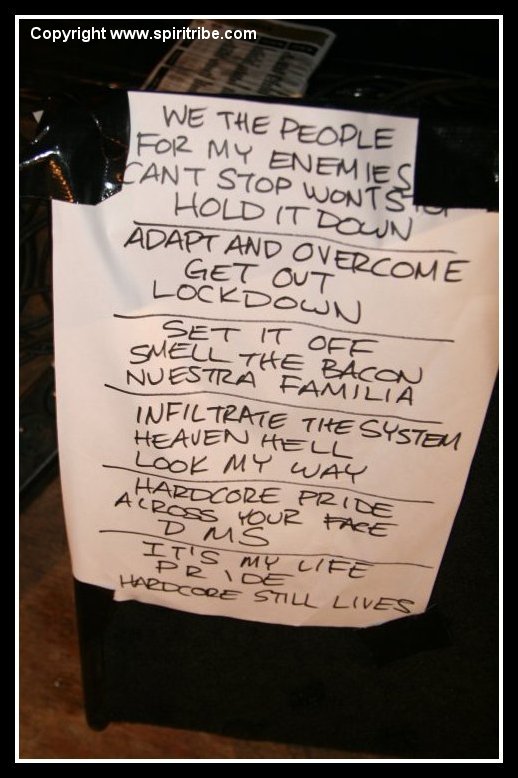 Copyright www.spiritribe.com
WE THE PEOPLE
FOR MY ENEMIES
CANT STOP WONT
HOLD IT DOWN
ADAPT AND OVERCOME
GET OUT
LOCKDOWN
SET IT OFF
SMELL THE BACON
NUESTRA FAMILIA
INFILTRATE THE SYSTEM
HEAVEN HELL
LOOK MY WAY
HARDCORE PRIDE
ACROSS YOUR FACE
DMS
IT'S MY LIFE
PRIDE
HARDCORE STILL LIVES